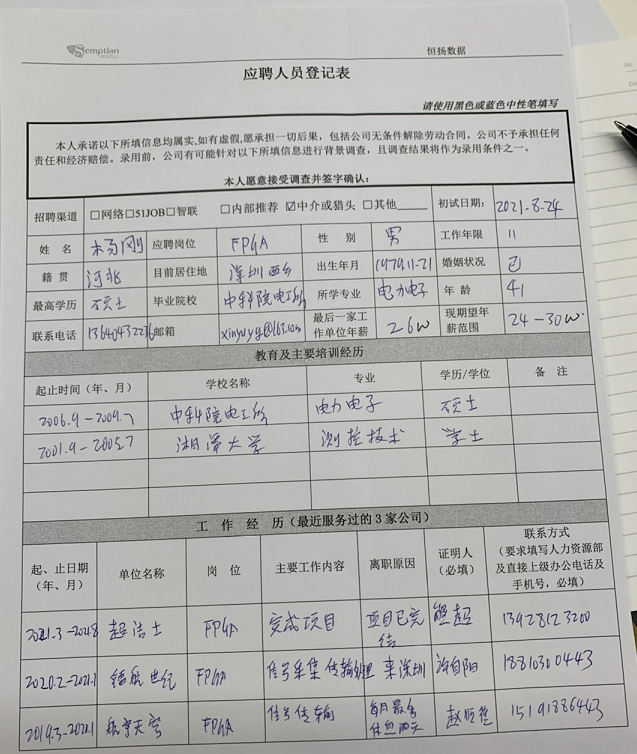 Semptian
恒扬数据
应聘人员登记表
请使用黑色或蓝色中性笔填写
本人承诺以下所填信息均属实,如有虚假,愿承担一切后果，包括公司无条件解除劳动合同。公司不予承担任何
责任和经济赔偿。录用前，公司有可能针对以下所填信息进行背景调查，且调查结果将作为录用条件之一。
本人愿意接受调查并签字确认：
招聘渠道 □网络□51JOB□智联 □内部推荐 ☑中介或猎头 □其他 初试日期： 2021.8-24
姓 名 杨刚 应聘岗位 FPGA 性 别 男 工作年限 11
籍 贯 河北 目前居住地 深圳西乡 出生年月 婚姻状况 已
最高学历 硕士 毕业院校 中科院电工所 所学专业 电力电子 年 龄 41
联系电话 邮箱 最后一家工作单位年薪 26W 现期望年薪范围 24-30W
教育及主要培训经历
起止时间（年、月） 学校名称 专业 学历/学位 备 注
2006.9-2009.7 中科院电工所 电力电子 硕士
2001.9-2005.7 湘潭大学 测控技术 学士
工 作 经 历（最近服务过的3家公司）
起、止日期（年、月） 单位名称 岗 位 主要工作内容 离职原因 证明人（必填） 联系方式（要求填写人力资源部及直接上级办公电话及手机号，必填）
超洁士 FPGA 完成项目 项目已完结 熊超 13928123200
2020.2-2021.1 航世纪 FPGA 信号采集 传输 来深圳 18810300443
航宇天穹 FPGA 信号传输 每月最多休息两天 15191886443